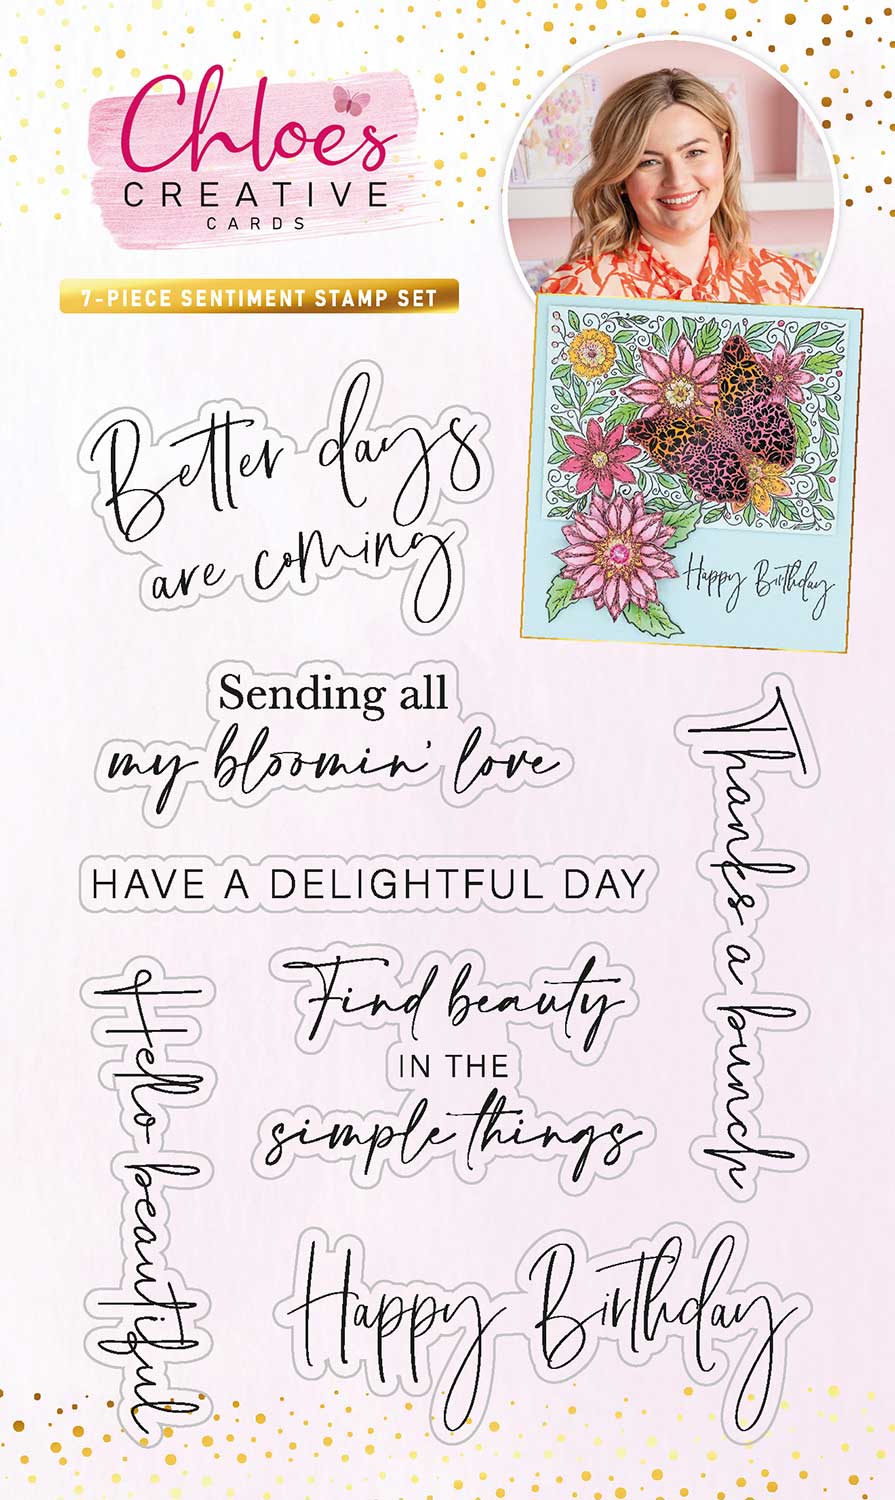 Chloes
CREATIVE
CARDS
7-PIECE SENTIMENT STAMP SET
Better days
are coming
Happy Birthday
Sending all
my bloomin' love
Thanks a bunch
HAVE A DELIGHTFUL DAY
Hello beautiful
Find beauty
IN THE
simple things
Happy Birthday